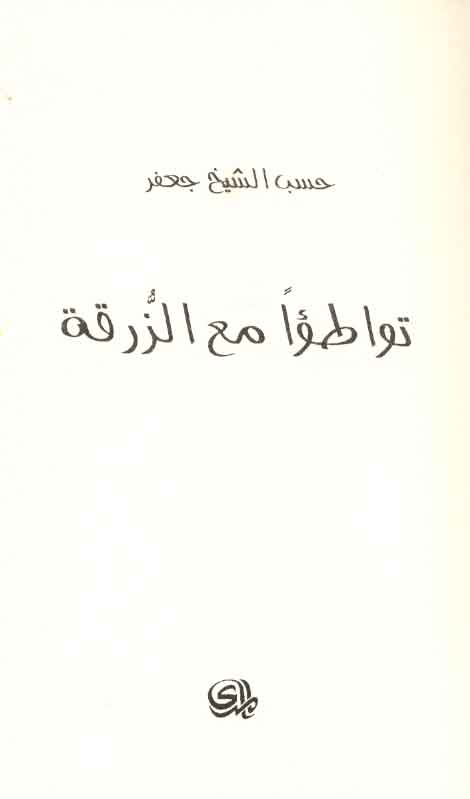 حسب الشيخ جعفر
تواطؤاً مع الزُّرقة
المدى